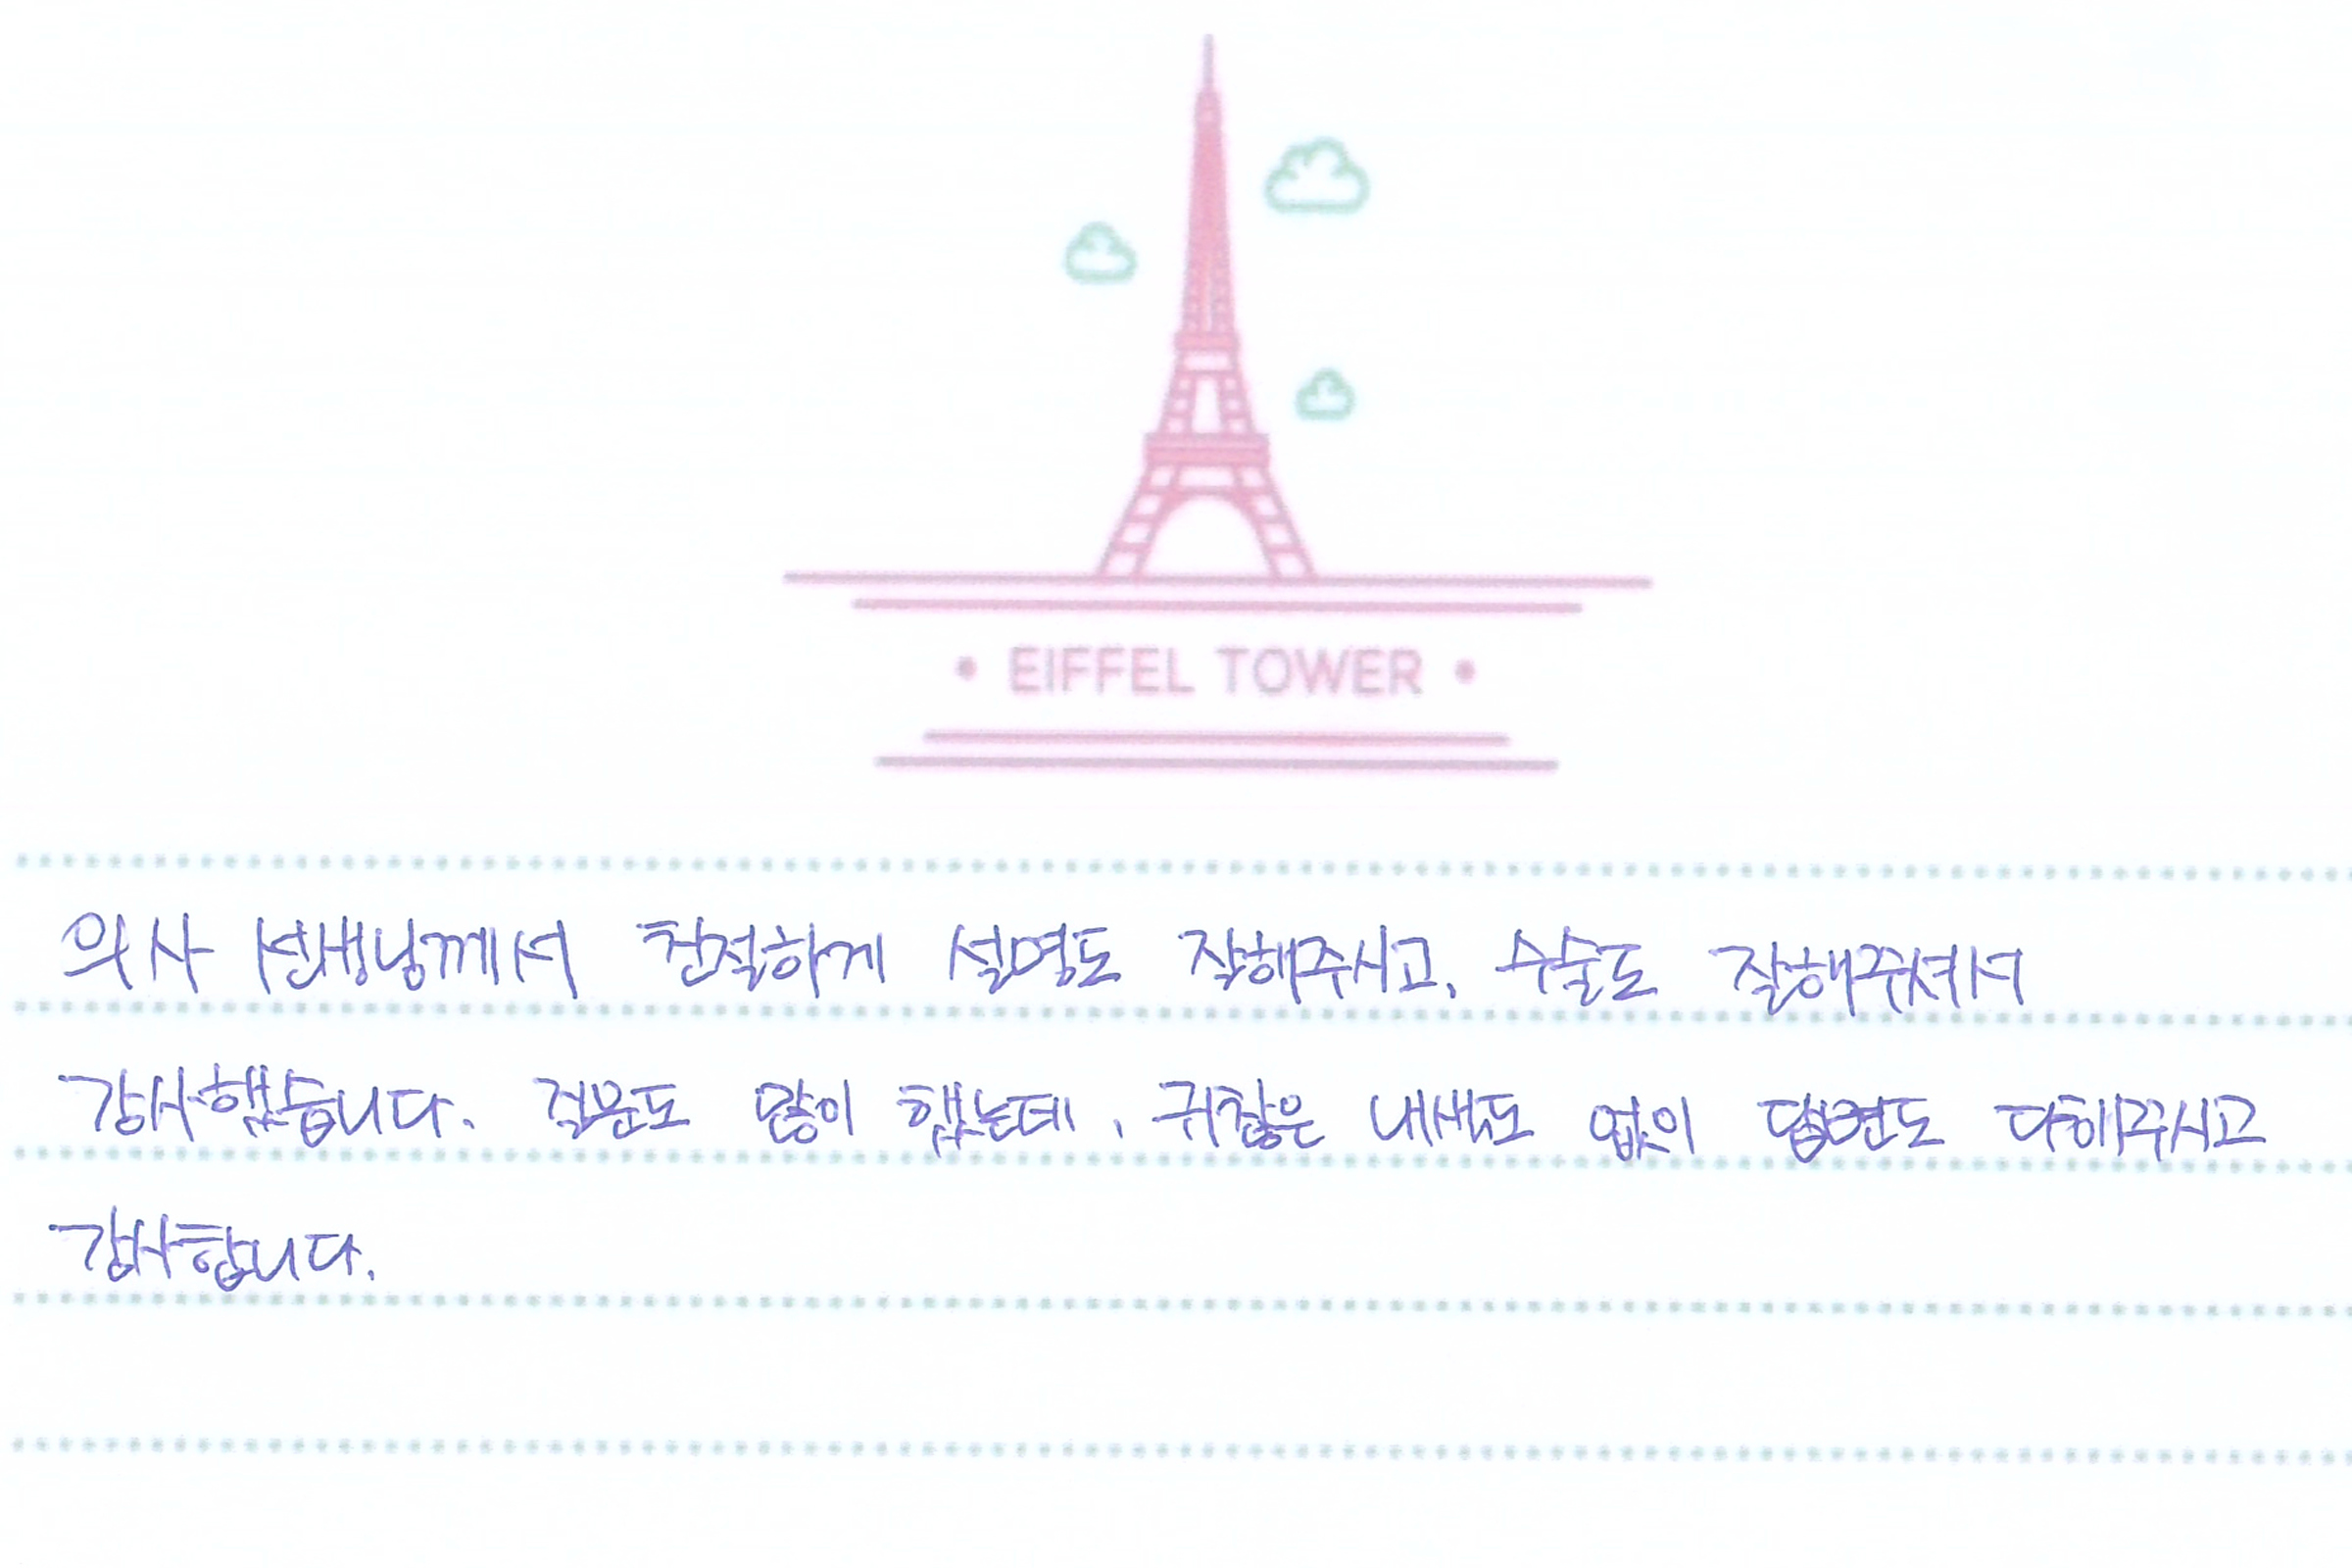 • EIFFEL TOWER •
의사 선생님께서 친절하게 설명도 잘해주시고, 수술도 잘해주셔서
감사했습니다. 질문도 많이 했는데, 귀찮은 내색도 없이 답변도 다해주시고
감사합니다.